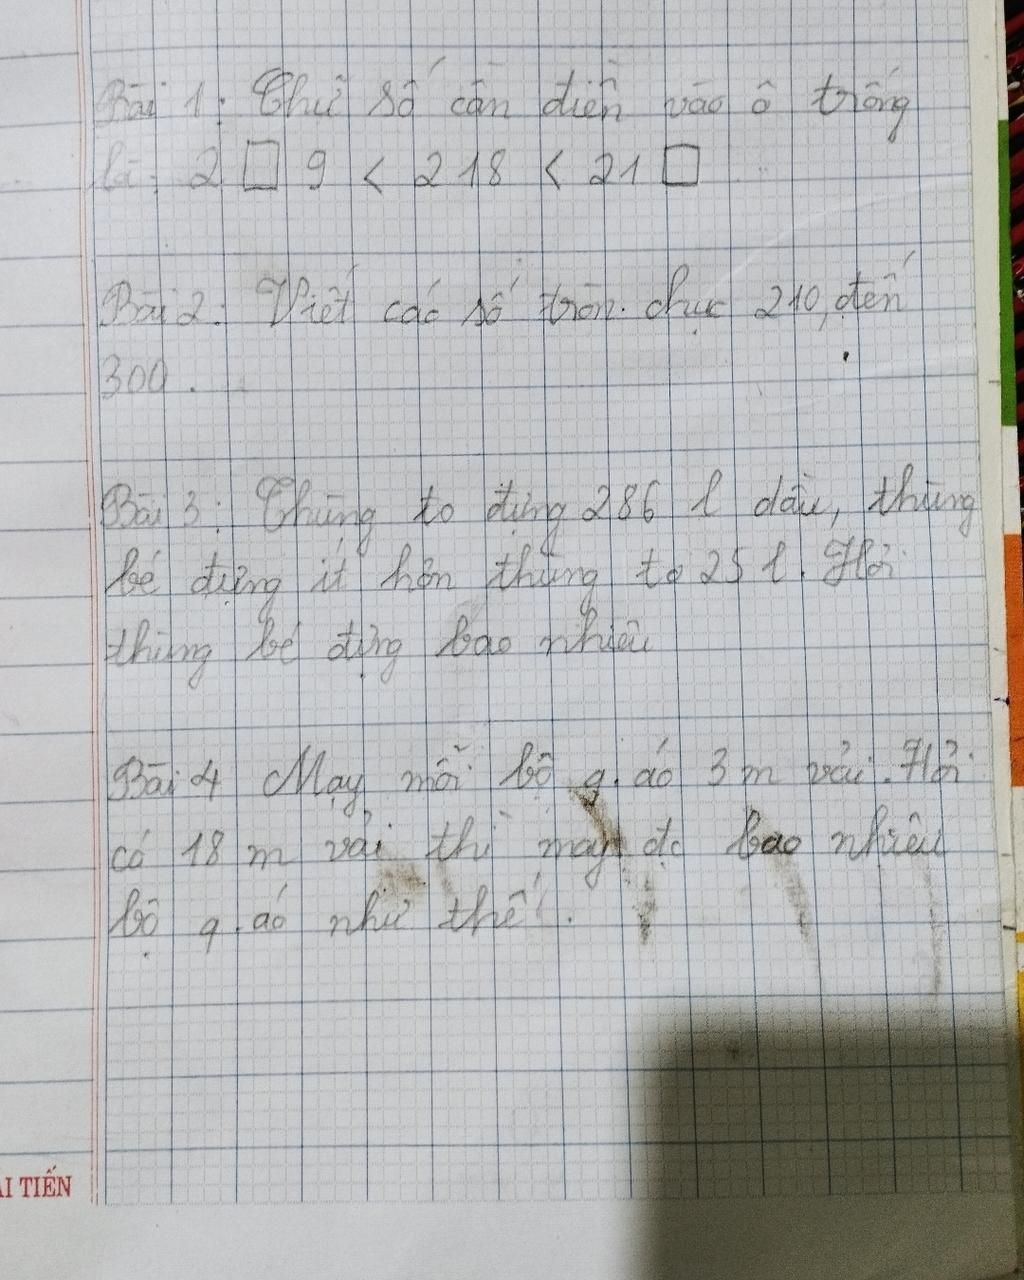 Bài 1: Chữ số cần điền vào ô trống
là: 2 □ 9 < 218 < 21 □
Bài 2: Viết các số tròn chục 210, đến
300.
Bài 3: Thùng to đựng 286 l dầu, thùng
bé đựng ít hơn thùng to 25 l. Hỏi
thùng bé đựng bao nhiêu
Bài 4 May mỗi bộ q.áo 3 m vải. Hỏi
có 18 m vải thì may đc bao nhiêu
bộ q.áo như thế.
ẢI TIẾN